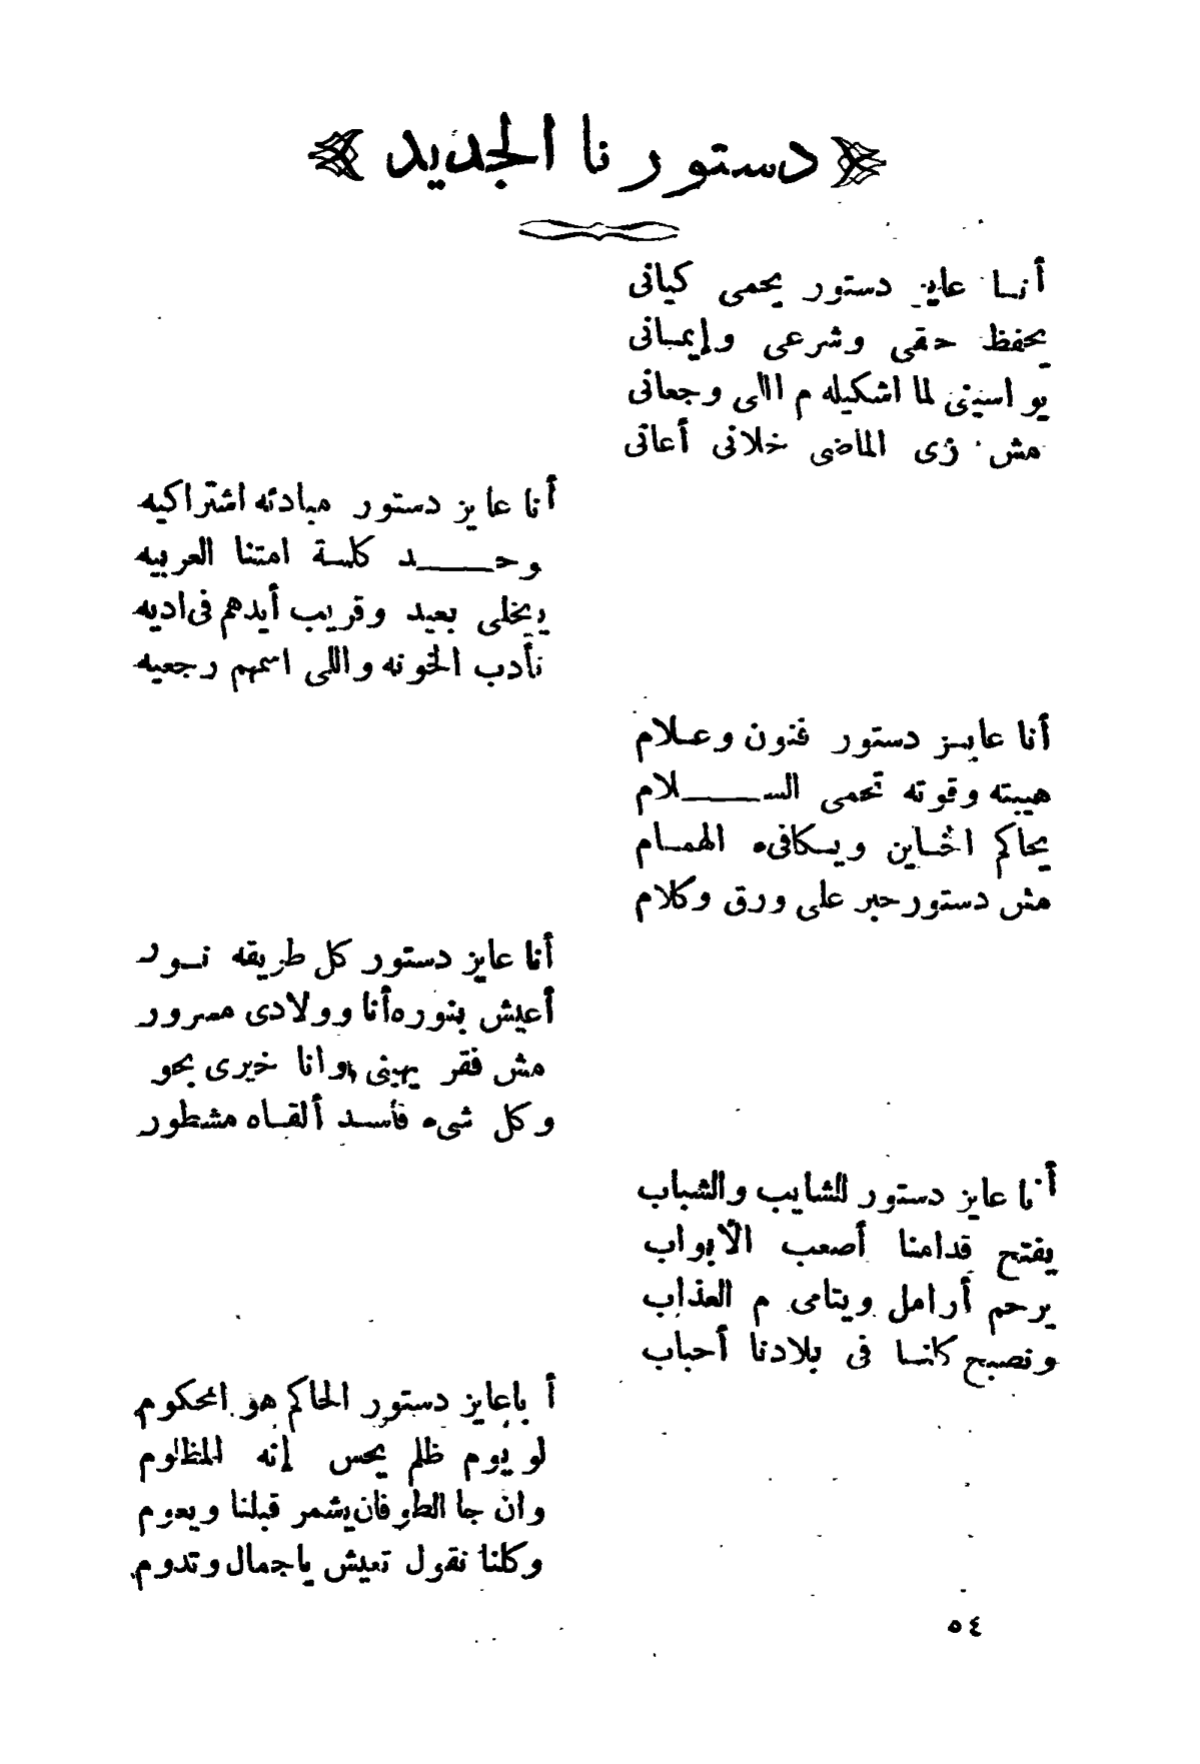 دستورنا الجديد
أنا عايز دستور يحمى كيانى
يحفظ حقى وشرعى وإيمانى
يواسينى لما اشكيله م اللى وجعانى
مش زى الماضى خلانى أعانى
أنا عايز دستور مبادئه اشتراكيه
وحد كلمة امتنا العربيه
ييخلى بعيد وقريب أيدهم فى اديه
نأدب الخونه واللى اسمهم رجعيه
أنا عايز دستور فنون وعلام
هيبته وقوته تحمى السلام
يحاكم الخاين ويكافىء الهمام
مش دستور حبر على ورق وكلام
أنا عايز دستور كل طريقه نور
أعيش بنوره أنا وولادى مسرور
مش فقر يهينى وانا خيرى بحو
وكل شىء فاسد ألقاه مشطور
أنا عايز دستور للشايب والشباب
يفتح قدامنا أصعب الأبواب
يرحم أرامل ويتامى م العذاب
ونصبح كلنا فى بلادنا أحباب
أنا عايز دستور الحاكم هو المحكوم
لو يوم ظلم يحس إنه المظلوم
وان جا الطوفان يشمر قبلنا ويعوم
وكلنا نقول تعيش ياجمال وتدوم
٥٤